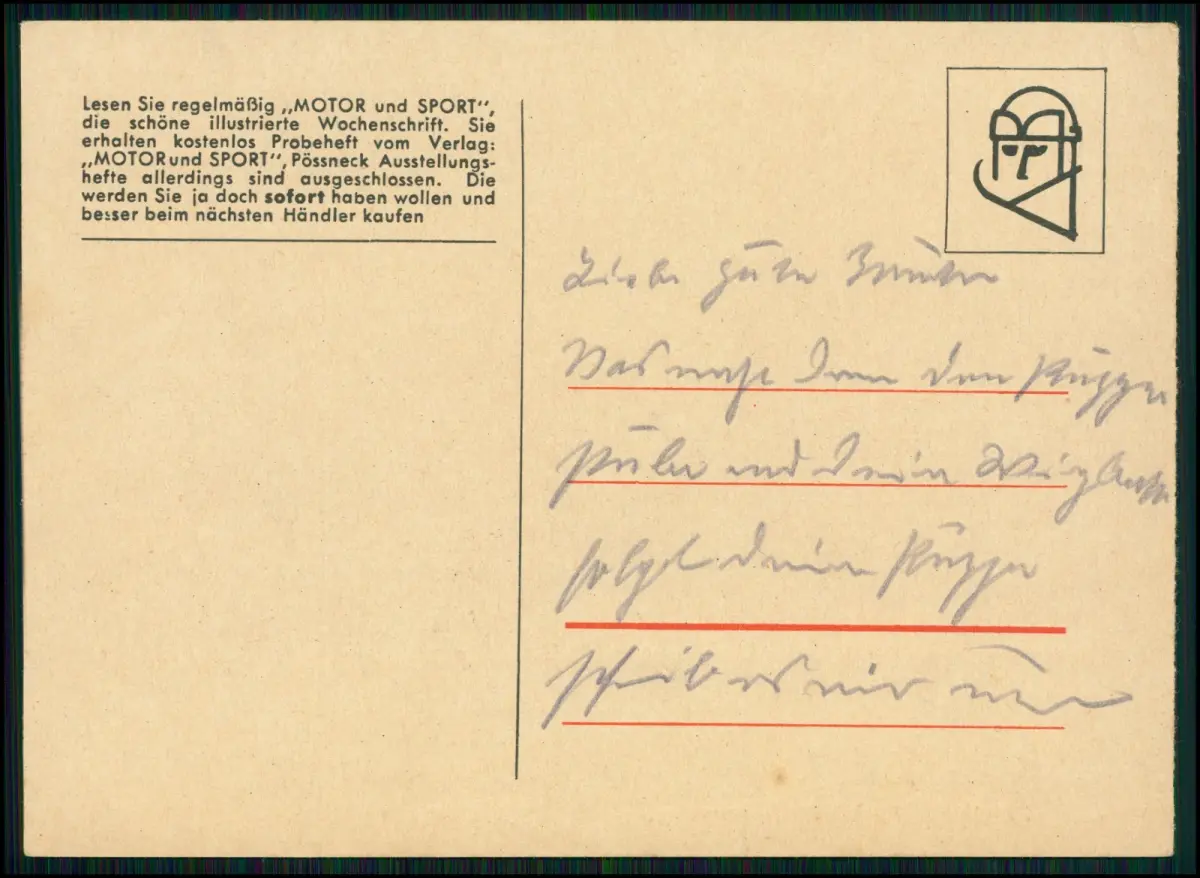 Lesen Sie regelmäßig „MOTOR und SPORT“,
die schöne illustrierte Wochenschrift. Sie
erhalten kostenlos Probeheft vom Verlag:
„MOTOR und SPORT“, Pössneck Ausstellungs-
hefte allerdings sind ausgeschlossen. Die
werden Sie ja doch sofort haben wollen und
besser beim nächsten Händler kaufen
Liebe gute
Was macht denn
und dein
folgt deine Puppe
schreib es mir